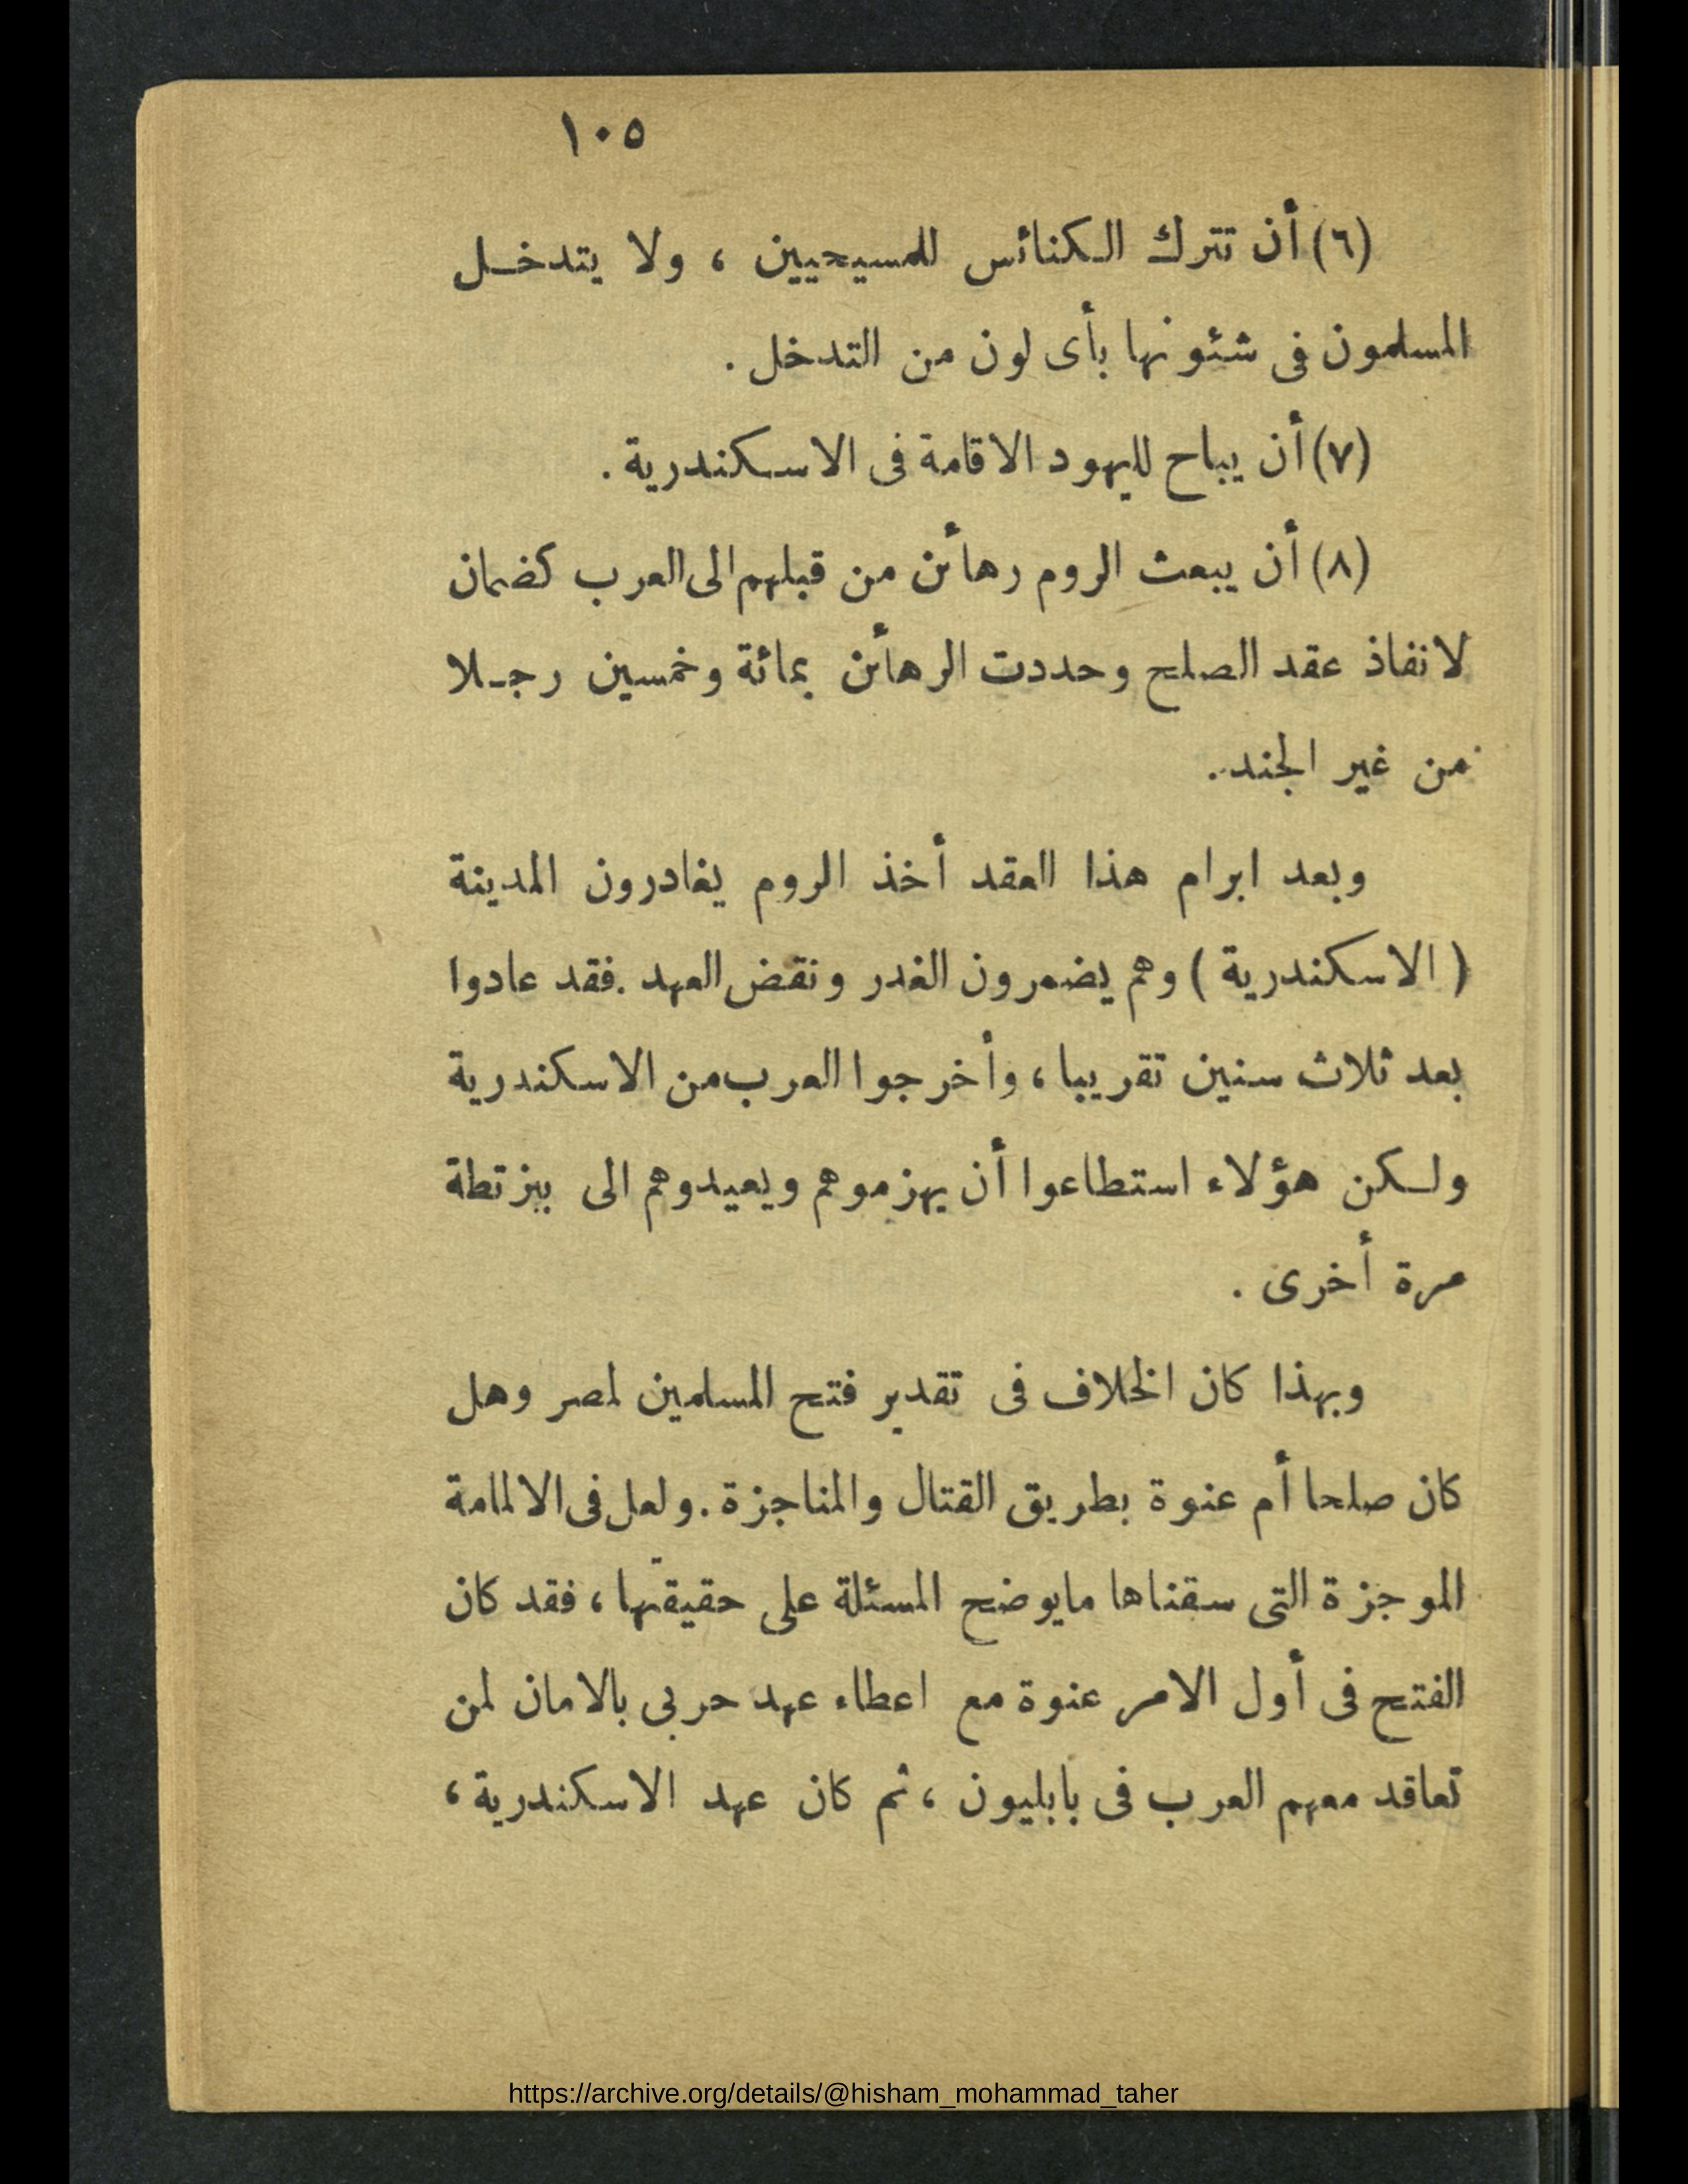 ١٠٥
(٦) أن تترك الكنائس للمسيحيين ، ولا يتدخل
المسلمون فى شئونها بأى لون من التدخل .
(٧) أن يباح لليهود الاقامة فى الاسكندرية .
(٨) أن يبعث الروم رهائن من قبلهم الى العرب كضمان
لانفاذ عقد الصلح وحددت الرهائن بمائة وخمسين رجلا
من غير الجند .
وبعد ابرام هذا العقد أخذ الروم يغادرون المدينة
( الاسكندرية ) وهم يضمرون الغدر ونقض العهد . فقد عادوا
بعد ثلاث سنين تقريبا ، وأخرجوا العرب من الاسكندرية
ولكن هؤلاء استطاعوا أن يهزموهم ويعيدوهم الى بيزتطة
مرة أخرى .
وبهذا كان الخلاف فى تقدير فتح المسلمين لمصر وهل
كان صلحا أم عنوة بطريق القتال والمناجزة . ولعل فى الالمامة
الموجزة التى سقناها مايوضح المسئلة على حقيقتها ، فقد كان
الفتح فى أول الامر عنوة مع اعطاء عهد حربى بالامان لمن
تعاقد معهم العرب فى بابليون ، ثم كان عهد الاسكندرية ،
https://archive.org/details/@hisham_mohammad_taher